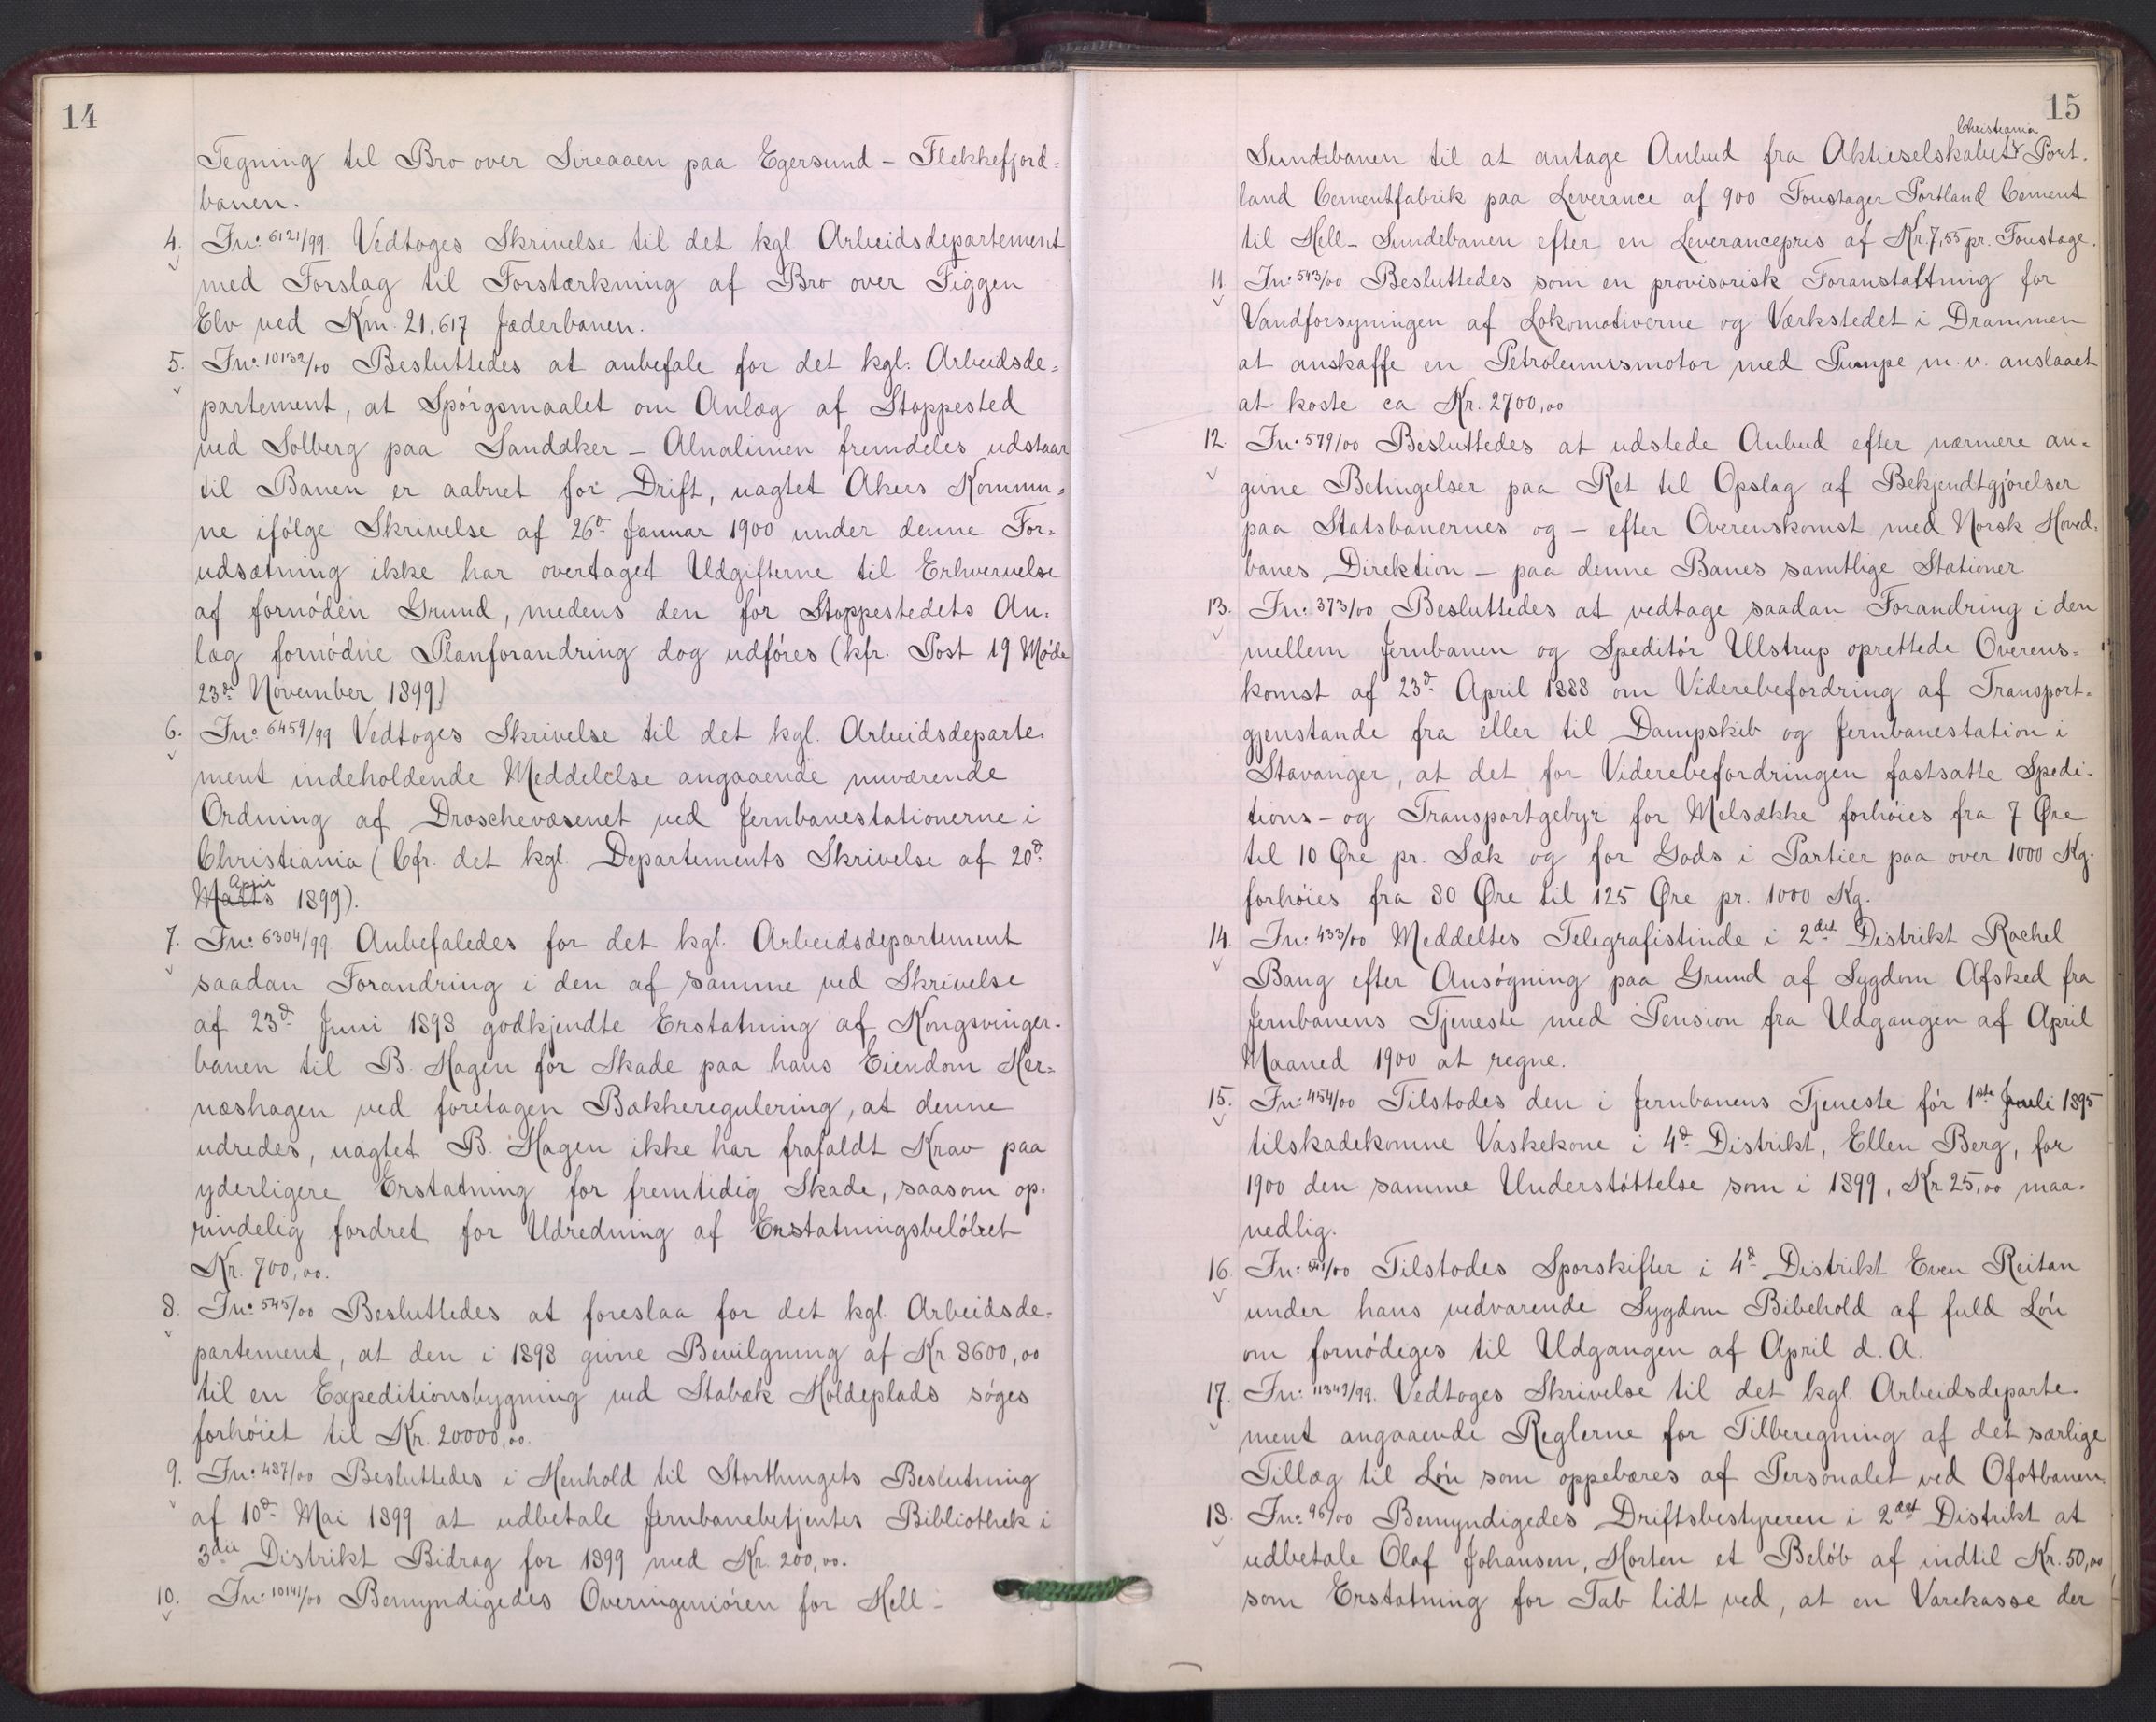 14
Tegning til Bro over Sireaaen paa Egersund - Flekkefjord=
banen.
4. Jn: 6121/99 Vedtoges Skrivelse til det kgl Arbeidsdepartement
med Forslag til Forstærkning af Bro over Figgen
Elv ved Km. 21,617 Jæderbanen.
5. Jn: 10132/00 Besluttedes at anbefale for det kgl: Arbeidsde=
partement, at Spörgsmaalet om Anlæg af Stoppested
ved Solberg paa Sandaker - Alnalinien fremdeles udstaar
til Banen er aabnet for Drift, uagtet Akers Kommu=
ne ifölge Skrivelse af 26d Januar 1900 under denne For=
udsætning ikke har overtaget Udgifterne til Erhvervelse
af fornöden Grund, medens den for Stoppestedets An=
læg fornödne Planforandring dog udföres (kfr. Post 19 Möde
23d November 1899)
6. Jn: 6459/99 Vedtoges Skrivelse til det kgl. Arbeidsdeparte-
ment indeholdende Meddelelse angaaende nuværende
Ordning af Droschevæsenet ved Jernbanestationerne i
Christiania (Cfr. det kgl. Departements Skrivelse af 20d
April
Marts 1899).
7. Jn: 6304/99 Anbefaledes for det kgl. Arbeidsdepartement
saadan Forandring i den af samme ved Skrivelse
af 23d Juni 1898 godkjendte Erstatning af Kongsvinger-
banen til B. Hagen for Skade paa hans Eiendom Her=
næshagen ved foretagen Bækkeregulering, at denne
udredes, uagtet B. Hagen ikke har frafaldt Krav paa
yderligere Erstatning for fremtidig Skade, saasom op=
rindelig fordret for Udredning af Erstatningsbelöbet
Kr. 700,00.
8. Jn: 545/00 Besluttedes at foreslaa for det kgl. Arbeidsde-
partement, at den i 1898 givne Bevilgning af Kr 8600,00
til en Expeditionsbygning ved Stabæk Holdeplads söges
forhöiet til Kr. 20000,00.
9. Jn: 487/00 Besluttedes i Henhold til Storthingets Beslutning
af 10d Mai 1899 at udbetale Jernbanebetjentes Bibliothek i
3die Distrikt Bidrag for 1899 med Kr. 200,00.
10. Jn: 10141/00 Bemyndigedes Overingeniören for Hell -
15
Christiania
Sundebanen til at antage Anbud fra Aktieselskabet Port-
land Cementfabrik paa Leverance af 900 Foustager Portland Cement
til Hell - Sundebanen efter en Leverancepris af Kr. 7,55 pr. Foustage.
11 Jn: 543/00 Besluttedes som en provisorisk Foranstaltning for
Vandforsyningen af Lokomotiverne og Værkstedet i Drammen
at anskaffe en Petroleumsmotor med Pumpe m.v. anslaaet
at koste ca Kr. 2700,00
12. Jn: 579/00 Besluttedes at udstede Anbud efter nærmere an=
givne Betingelser paa Ret til Opslag af Bekjendtgjörelser
paa Statsbanernes og - efter Overenskomst med Norsk Hoved=
banes Direktion - paa denne Banes samtlige Stationer.
13. Jn: 373/00 Besluttedes at vedtage saadan Forandring i den
mellem Jernbanen og Speditör Ullstrup oprettede Overens=
komst af 23d April 1888 om Viderebefordring af Transport=
gjenstande fra eller til Dampskib og Jernbanestation i
Stavanger, at det for Viderebefordringen fastsatte Spedi-
tions- og Transportgebyr for Melsække forhöies fra 7 Øre
til 10 Øre pr. Sæk og for Gods i Partier paa over 1000 Kg.
forhöies fra 80 Øre til 125 Øre pr. 1000 Kg.
14. Jn: 433/00 Meddeltes Telegrafistinde i 2det Distrikt Rachel
Bang efter Ansögning paa Grund af Sygdom Afsked fra
Jernbanens Tjeneste med Pension fra Udgangen af April
Maaned 1900 at regne.
15. Jn: 454/00 Tilstodes den i Jernbanens Tjeneste för 1ste Juli 1895
tilskadekomne Vaskekone i 4d Distrikt, Ellen Berg, for
1900 den samme Understöttelse som i 1899, Kr 25,00 maa-
nedlig.
16. Jn: /00 Tilstodes Sporskifter i 4d Distrikt Even Reitan
under hans vedvarende Sygdom Bibehold af fuld Lön
om fornödiges til Udgangen af April d.A.
17. Jn: 11349/99. Vedtoges Skrivelse til det kgl. Arbeidsdeparte-
ment angaaende Reglerne for Tilberegning af det særlige
Tillæg til Lön som oppebæres af Personalet ved Ofotbanen.
18. Jn: 96/00 Bemyndigedes Driftsbestyreren i 2det Distrikt at
udbetale Olaf Johansen, Horten et Belöb af indtil Kr. 50,00
som Erstatning for Tab lidt ved, at en Varekasse der